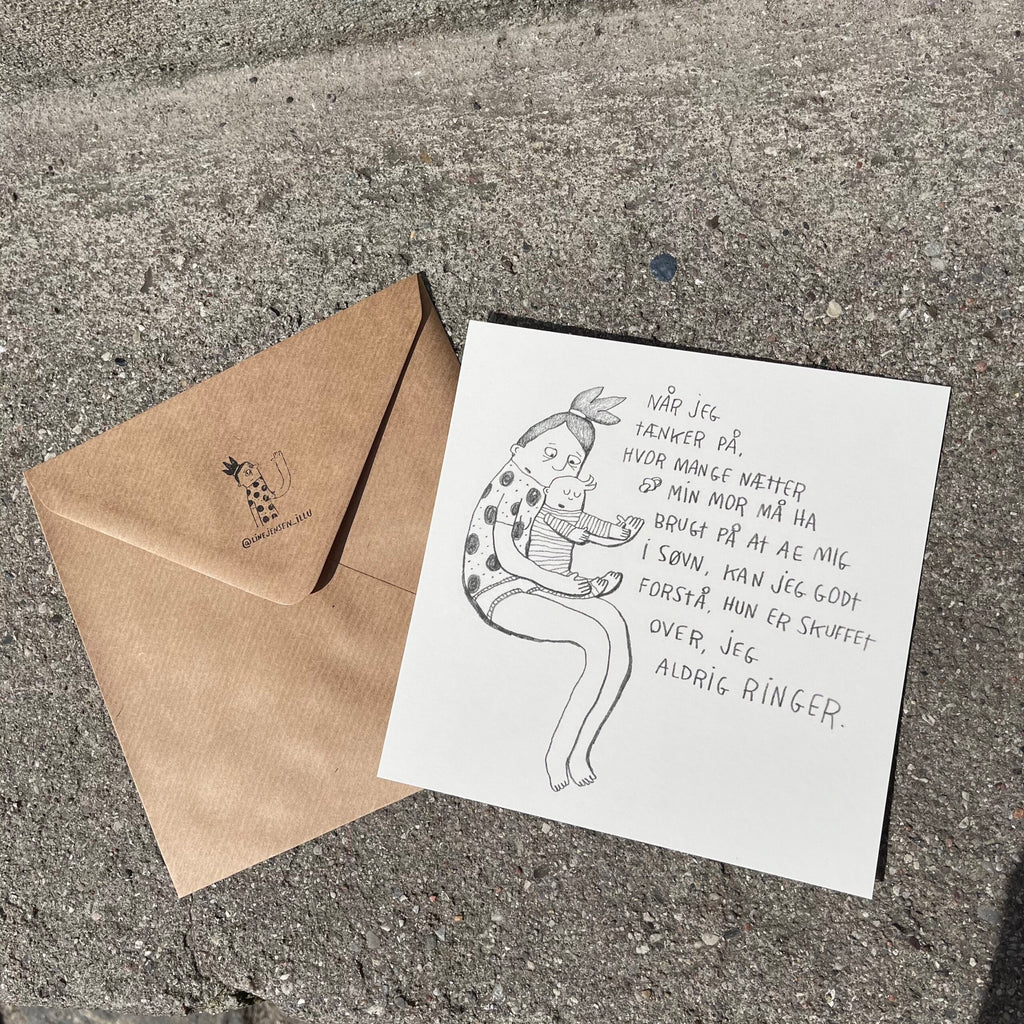 NÅR JEG
TÆNKER PÅ,
HVOR MANGE NÆTTER
MIN MOR MÅ HA
BRUGT PÅ AT AE MIG
I SØVN, KAN JEG GODT
FORSTÅ, HUN ER SKUFFET
OVER, JEG
ALDRIG RINGER.
@LINEJENSEN_ILLU